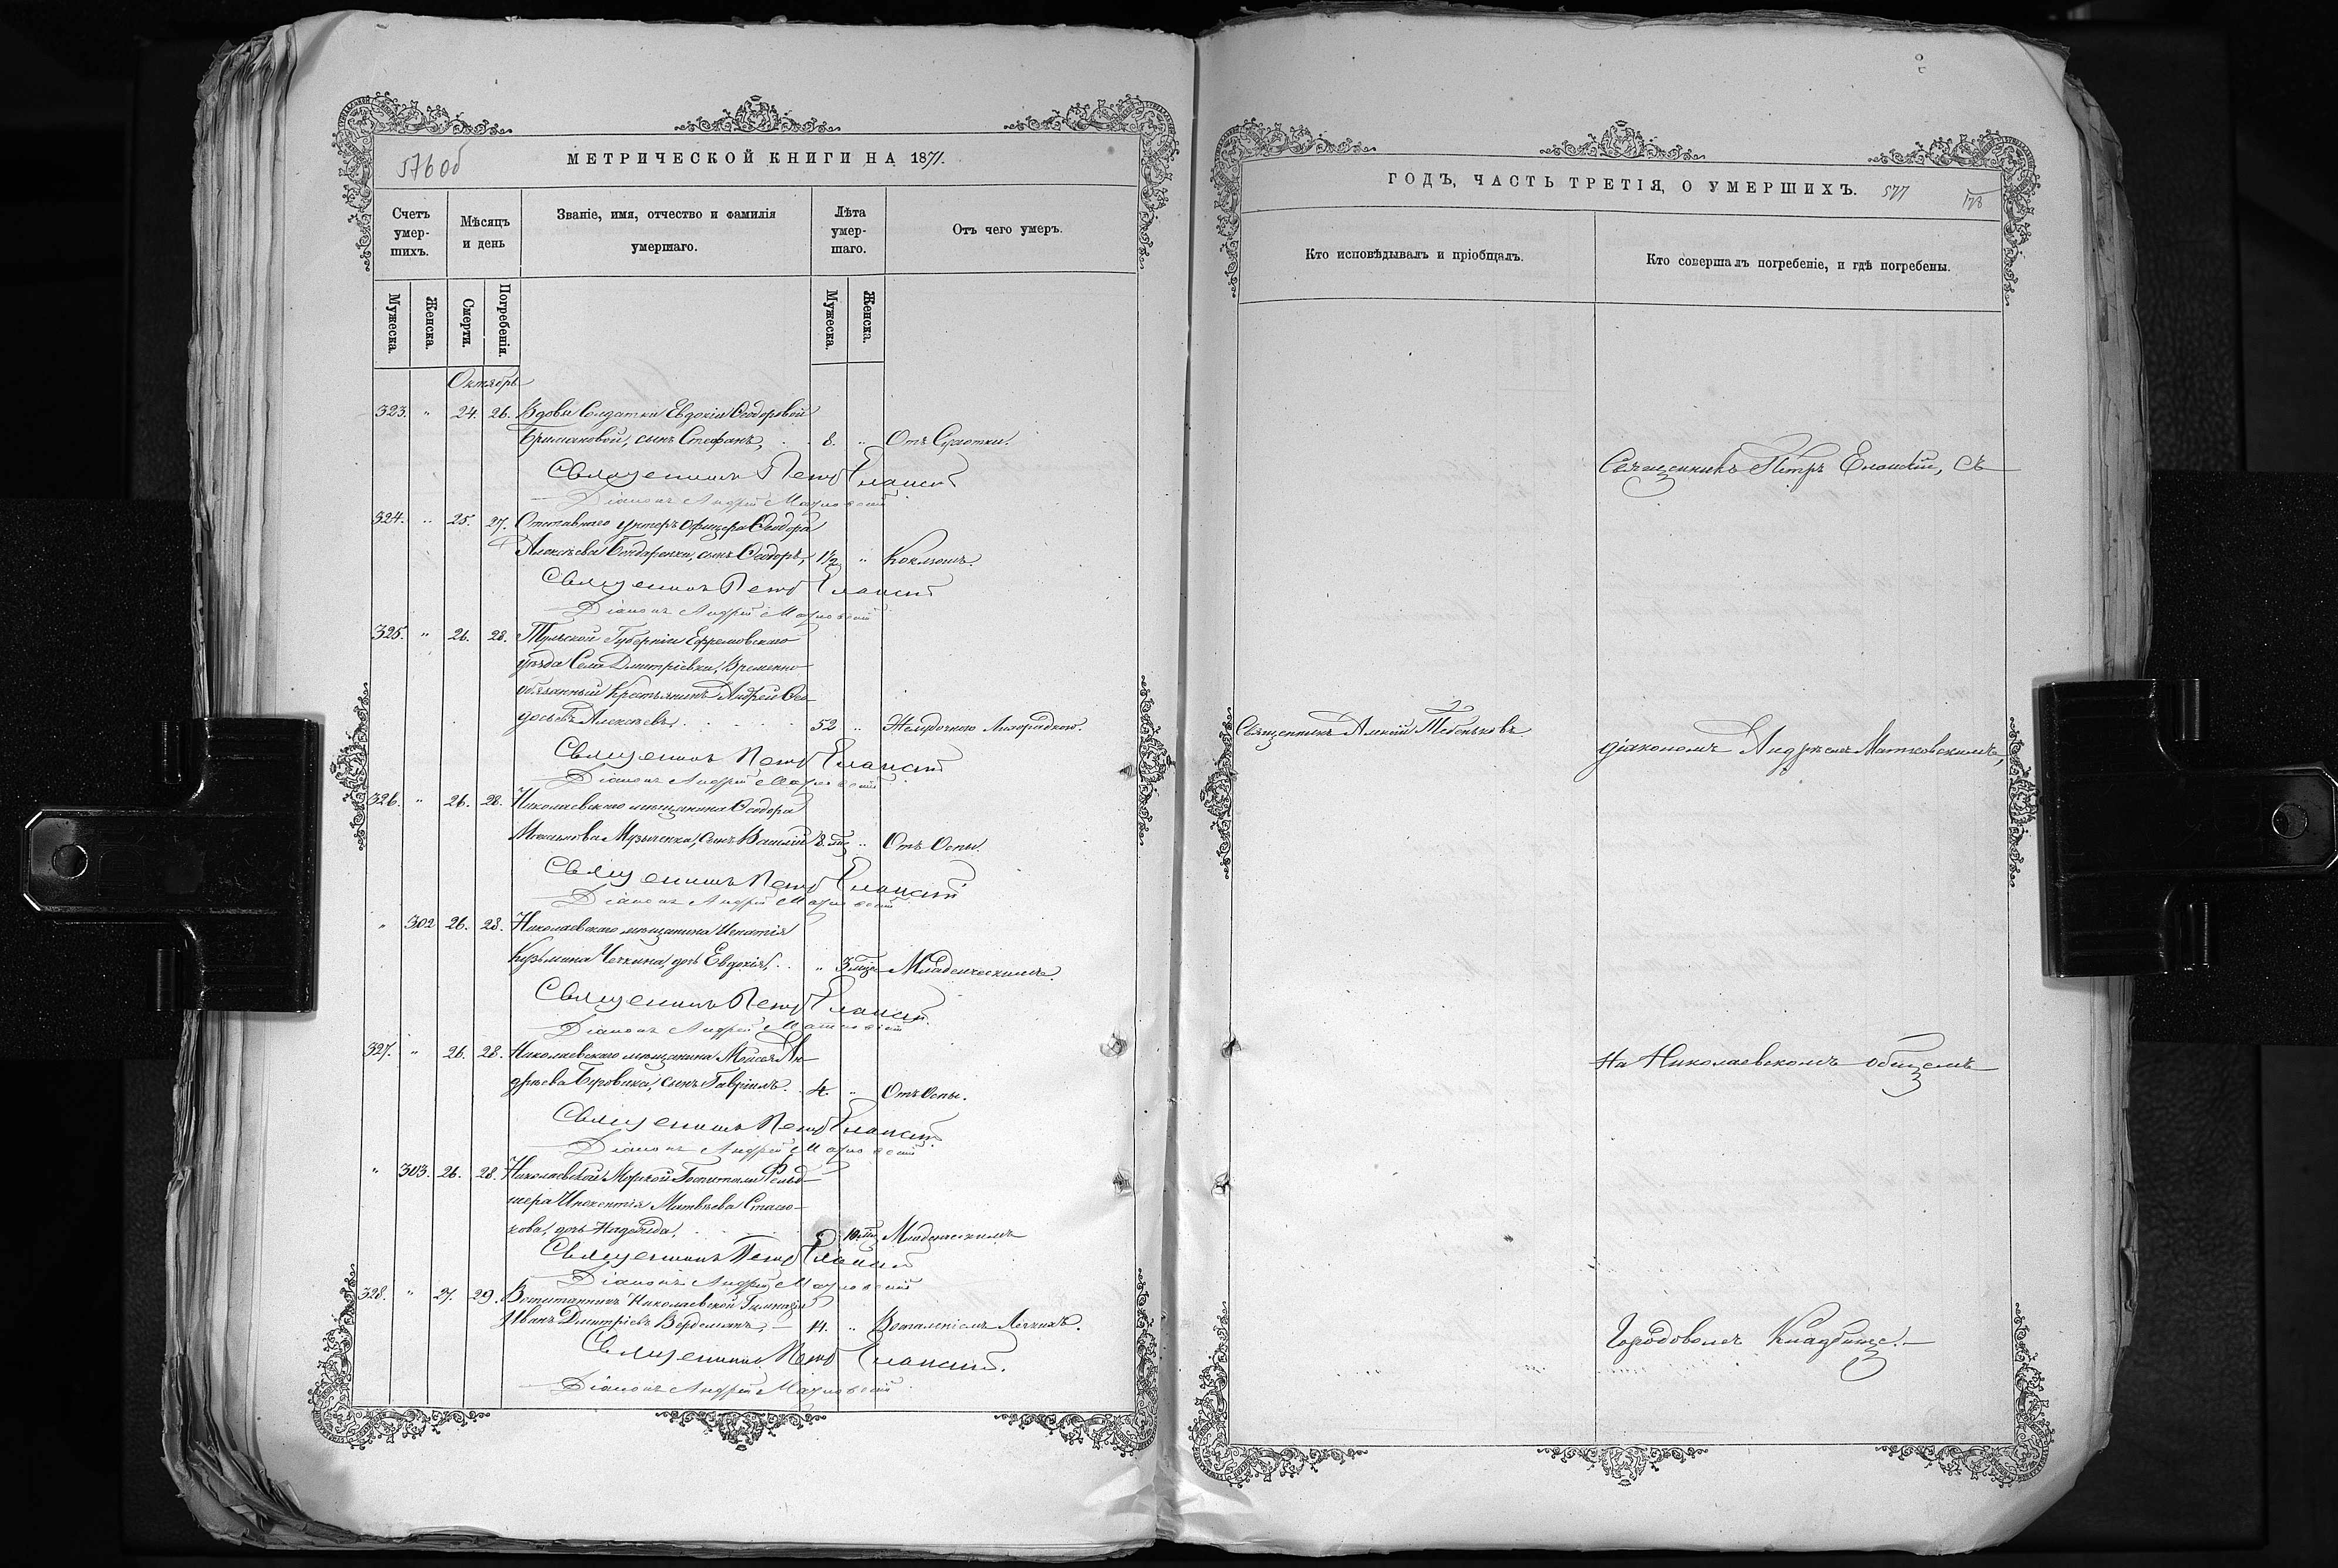 576 об
МЕТРИЧЕСКОЙ КНИГИ НА 1871.
Счетъ умер-шихъ.
Мѣсяцъ и день
Званіе, имя, отчество и фамилія умершаго.
Лѣта умер-шаго.
Отъ чего умеръ.
Мужеска.
Женска.
Смерти.
Погребенія.
Мужеска.
Женска.
Октябрь
323. " 24. 26. Вдовы Солдатки Евдокіи Ѳеодоровой
сынъ Стефанъ, 8. " Отъ
Священникъ Петръ Еланскій
Діаконъ Андрей
324. " 25. 27. Отставнаго унтеръ Офицера Ѳеодора
Алексѣева Бондаренки, сынъ Ѳеодоръ, 1½ " Коклюшъ.
Священникъ Петръ Еланскій
Діаконъ Андрей
325. " 26. 28. Тульской Губерніи Ефремовскаго
уѣзда Села Дмитріевки, Временно-
обязанный Крестьянинъ Андрей Ѳео-
досьевъ Алексѣевъ, 52 " Желудочною Лихорадкою.
Священникъ Петръ Еланскій
Діаконъ Андрей
326. " 26. 28. Николаевскаго мѣщанина Ѳеодора
сынъ Василій 8. мц " Отъ Оспы.
Священникъ Петръ Еланскій
Діаконъ Андрей
" 302 26. 28. Николаевскаго мѣщанина Игнатія
Кузьмина Чечкина, дочь Евдокія, " 3 мца Младенческимъ.
Священникъ Петръ Еланскій
Діаконъ Андрей
327. " 26. 28. Николаевскаго мѣщанина Моисея Ан-
дреева Боровика, сынъ Гавріилъ. 4. " Отъ Оспы.
Священникъ Петръ Еланскій
Діаконъ Андрей
" 303. 26. 28. Николаевской Морской Госпитали Фельд-
шера Инокентія Матвѣева Стасю-
кова, дочь Надежда, 10. мц Младенческимъ
Священникъ Петръ Еланскій
Діаконъ Андрей
328. " 27. 29. Воспитанникъ Николаевской Гимназіи
Иванъ Дмитріевъ 14. " Воспаленіемъ Легкихъ.
Священникъ Петръ Еланскій.
Діаконъ Андрей
ГОДЪ, ЧАСТЬ ТРЕТІЯ, О УМЕРШИХЪ.
577
178
Кто исповѣдывалъ и пріобщалъ.
Кто совершалъ погребеніе, и гдѣ погребены.
Священникъ Петръ Еланскій, съ
Священникъ Алексій Тебеньковъ
діакономъ Андреемъ
На Николаевскомъ общемъ
Городовомъ Кладбище.